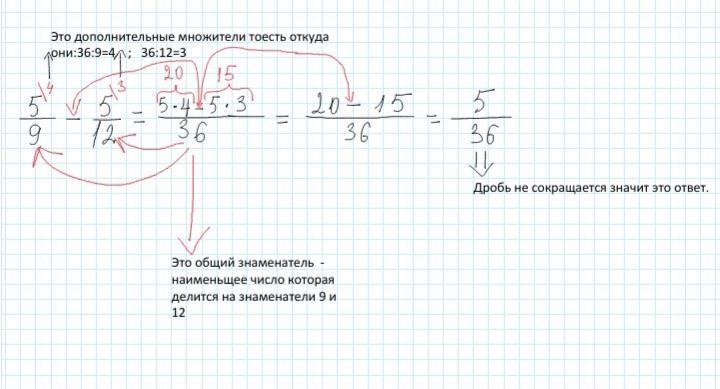 Это дополнительные множители тоесть откуда
они:36:9=4 ; 36:12=3
5\4/9 - 5\3/12 = (5·4-5·3)/36 = (20-15)/36 = 5/36
20 15
Дробь не сокращается значит это ответ.
Это общий знаменатель -
наименьщее число которая
делится на знаменатели 9 и
12